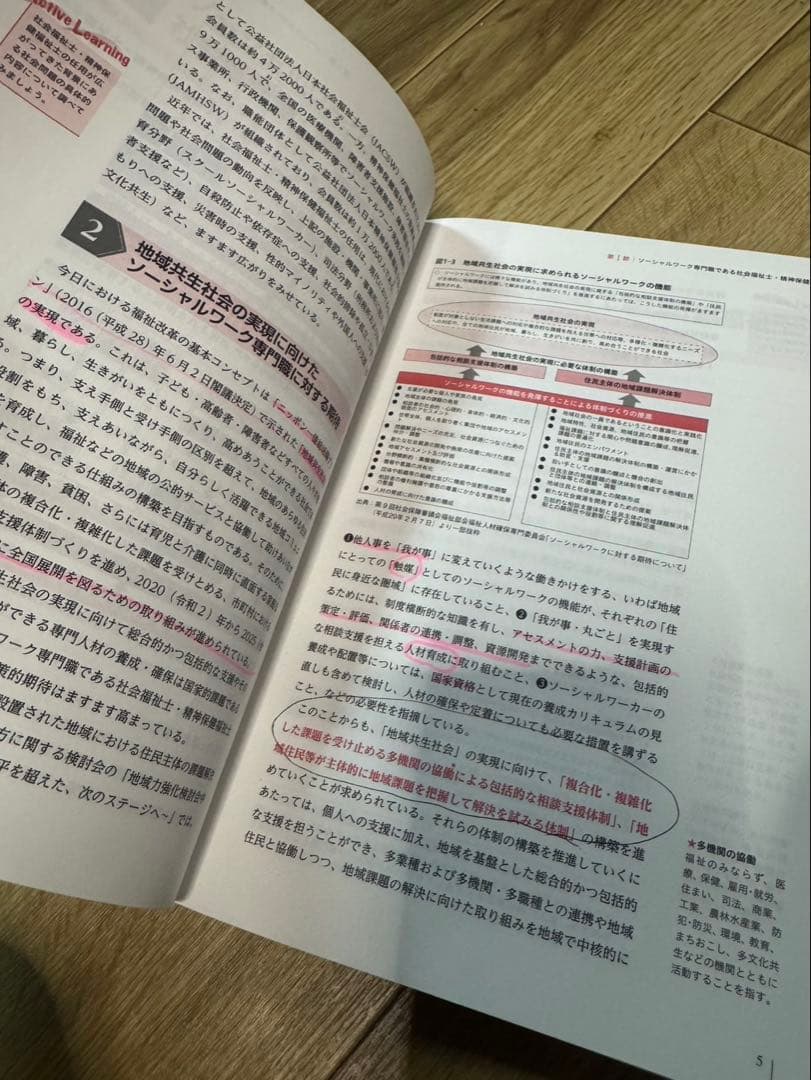 Active Learning
社会福祉士・精神保
健福祉士の任用が広
がってきた背景にあ
る社会問題の具体的
内容について調べて
みましょう。
として公益社団法人日本社会福祉士会（JACSW）が
会員数は約4万2000人である。一方、精神保健福祉士
9万1000人で、全国の医療機関、障害者支援施設、
ス事業所、行政機関、保護観察所等でソーシャルワーク
いる。なお、職能団体として公益社団法人日本精神保健
（JAMHSW）が組織されており、会員数は約1万2000人
近年では、社会福祉士・精神保健福祉士の任用は、
問題や社会問題の動向を反映し、上記の施設・機関・事
育分野（スクールソーシャルワーカー）、司法分野
者支援など）、自殺防止や依存症への支援、社会的
もりへの支援、災害時の支援、性的マイノリティや外国人への
文化共生）など、ますます広がりをみせている。
2
地域共生社会の実現に向けた
ソーシャルワーク専門職に対する期待
今日における福祉改革の基本コンセプトは「ニッポン
ン」（2016（平成28）年6月2日閣議決定）で示された「地域共生
の実現である。これは、子ども・高齢者・障害者などすべての人々が
域、暮らし、生きがいをともにつくり、高めあうことができる社会
る。つまり、支え手側と受け手側の区別を超えて、地域のあらゆる
役割をもち、支えあいながら、自分らしく活躍できる地域コミュ
を育成し、福祉などの地域の公的サービスと協働して助けあい
すことのできる仕組みの構築を目指すものである。そのため
護、障害、貧困、さらには育児と介護に同時に直面する家庭
体の複合化・複雑化した課題を受けとめる、市町村における
支援体制づくりを進め、2020（令和2）年から2025
に全国展開を図るための取り組みが進められている。
生社会の実現に向けて総合的かつ包括的な支援や
ができる専門人材の養成・確保は国家的課題である
ワーク専門職である社会福祉士・精神保健福祉士
策的期待はますます高まっている。
設置された地域における住民主体の課題解決
方に関する検討会の「地域力強化検討会中
平を超えた、次のステージへ～」では、
第1節 ソーシャルワーク専門職である社会福祉士・精神保健
図1-3 地域共生社会の実現に求められるソーシャルワークの機能
地域共生社会の実現
地域共生社会の実現に必要な体制の構築
包括的な相談支援体制の構築
住民主体の地域課題解決体制
ソーシャルワークの機能を発揮することによる体制づくりの推進
● 支援が必要な個人や家族の発見
● 地域全体の課題の発見
● 相談者の社会的・心理的・身体的・経済的・文化的
側面のアセスメント
● 問題解決やニーズの充足、社会資源につなぐための
仲介・調整
● 新たな社会資源の開発や施策の改善に向けた提案
● 人材の育成に向けた意識の醸成
● 地域住民のエンパワメント
● 担い手としての意識の醸成と機会の創出
● 地域住民と社会資源との関係形成
● 新たな社会資源を開発するための提案
出典：第9回社会保障審議会福祉部会福祉人材確保専門委員会「ソーシャルワークに対する期待について」
（平成29年2月7日）より一部抜粋
❶他人事を「我が事」に変えていくような働きかけをする、いわば地域
にとっての「触媒」としてのソーシャルワークの機能が、それぞれの「住
民に身近な圏域」に存在していること、❷「我が事・丸ごと」を実現す
るためには、制度横断的な知識を有し、アセスメントの力、支援計画の
策定・評価、関係者の連携・調整、資源開発までできるような、包括的
な相談支援を担える人材育成に取り組むこと、❸ソーシャルワーカーの
養成や配置等については、国家資格として現在の養成カリキュラムの見
直しも含めて検討し、人材の確保や定着についても必要な措置を講ずる
こと、などの必要性を指摘している。
このことからも、「地域共生社会」の実現に向けて、「複合化・複雑化
した課題を受け止める多機関の協働★による包括的な相談支援体制」、「地
域住民等が主体的に地域課題を把握して解決を試みる体制」の構築を進
めていくことが求められている。それらの体制の構築を推進していくに
あたっては、個人への支援に加え、地域を基盤とした総合的かつ包括的
な支援を担うことができ、多業種および多機関・多職種との連携や地域
住民と協働しつつ、地域課題の解決に向けた取り組みを地域で中核的に
★多機関の協働
福祉のみならず、医
療、保健、雇用・就労、
住まい、司法、商業、
工業、農林水産業、防
犯・防災、環境、教育、
まちおこし、多文化共
生などの機関とともに
活動することを指す。
5